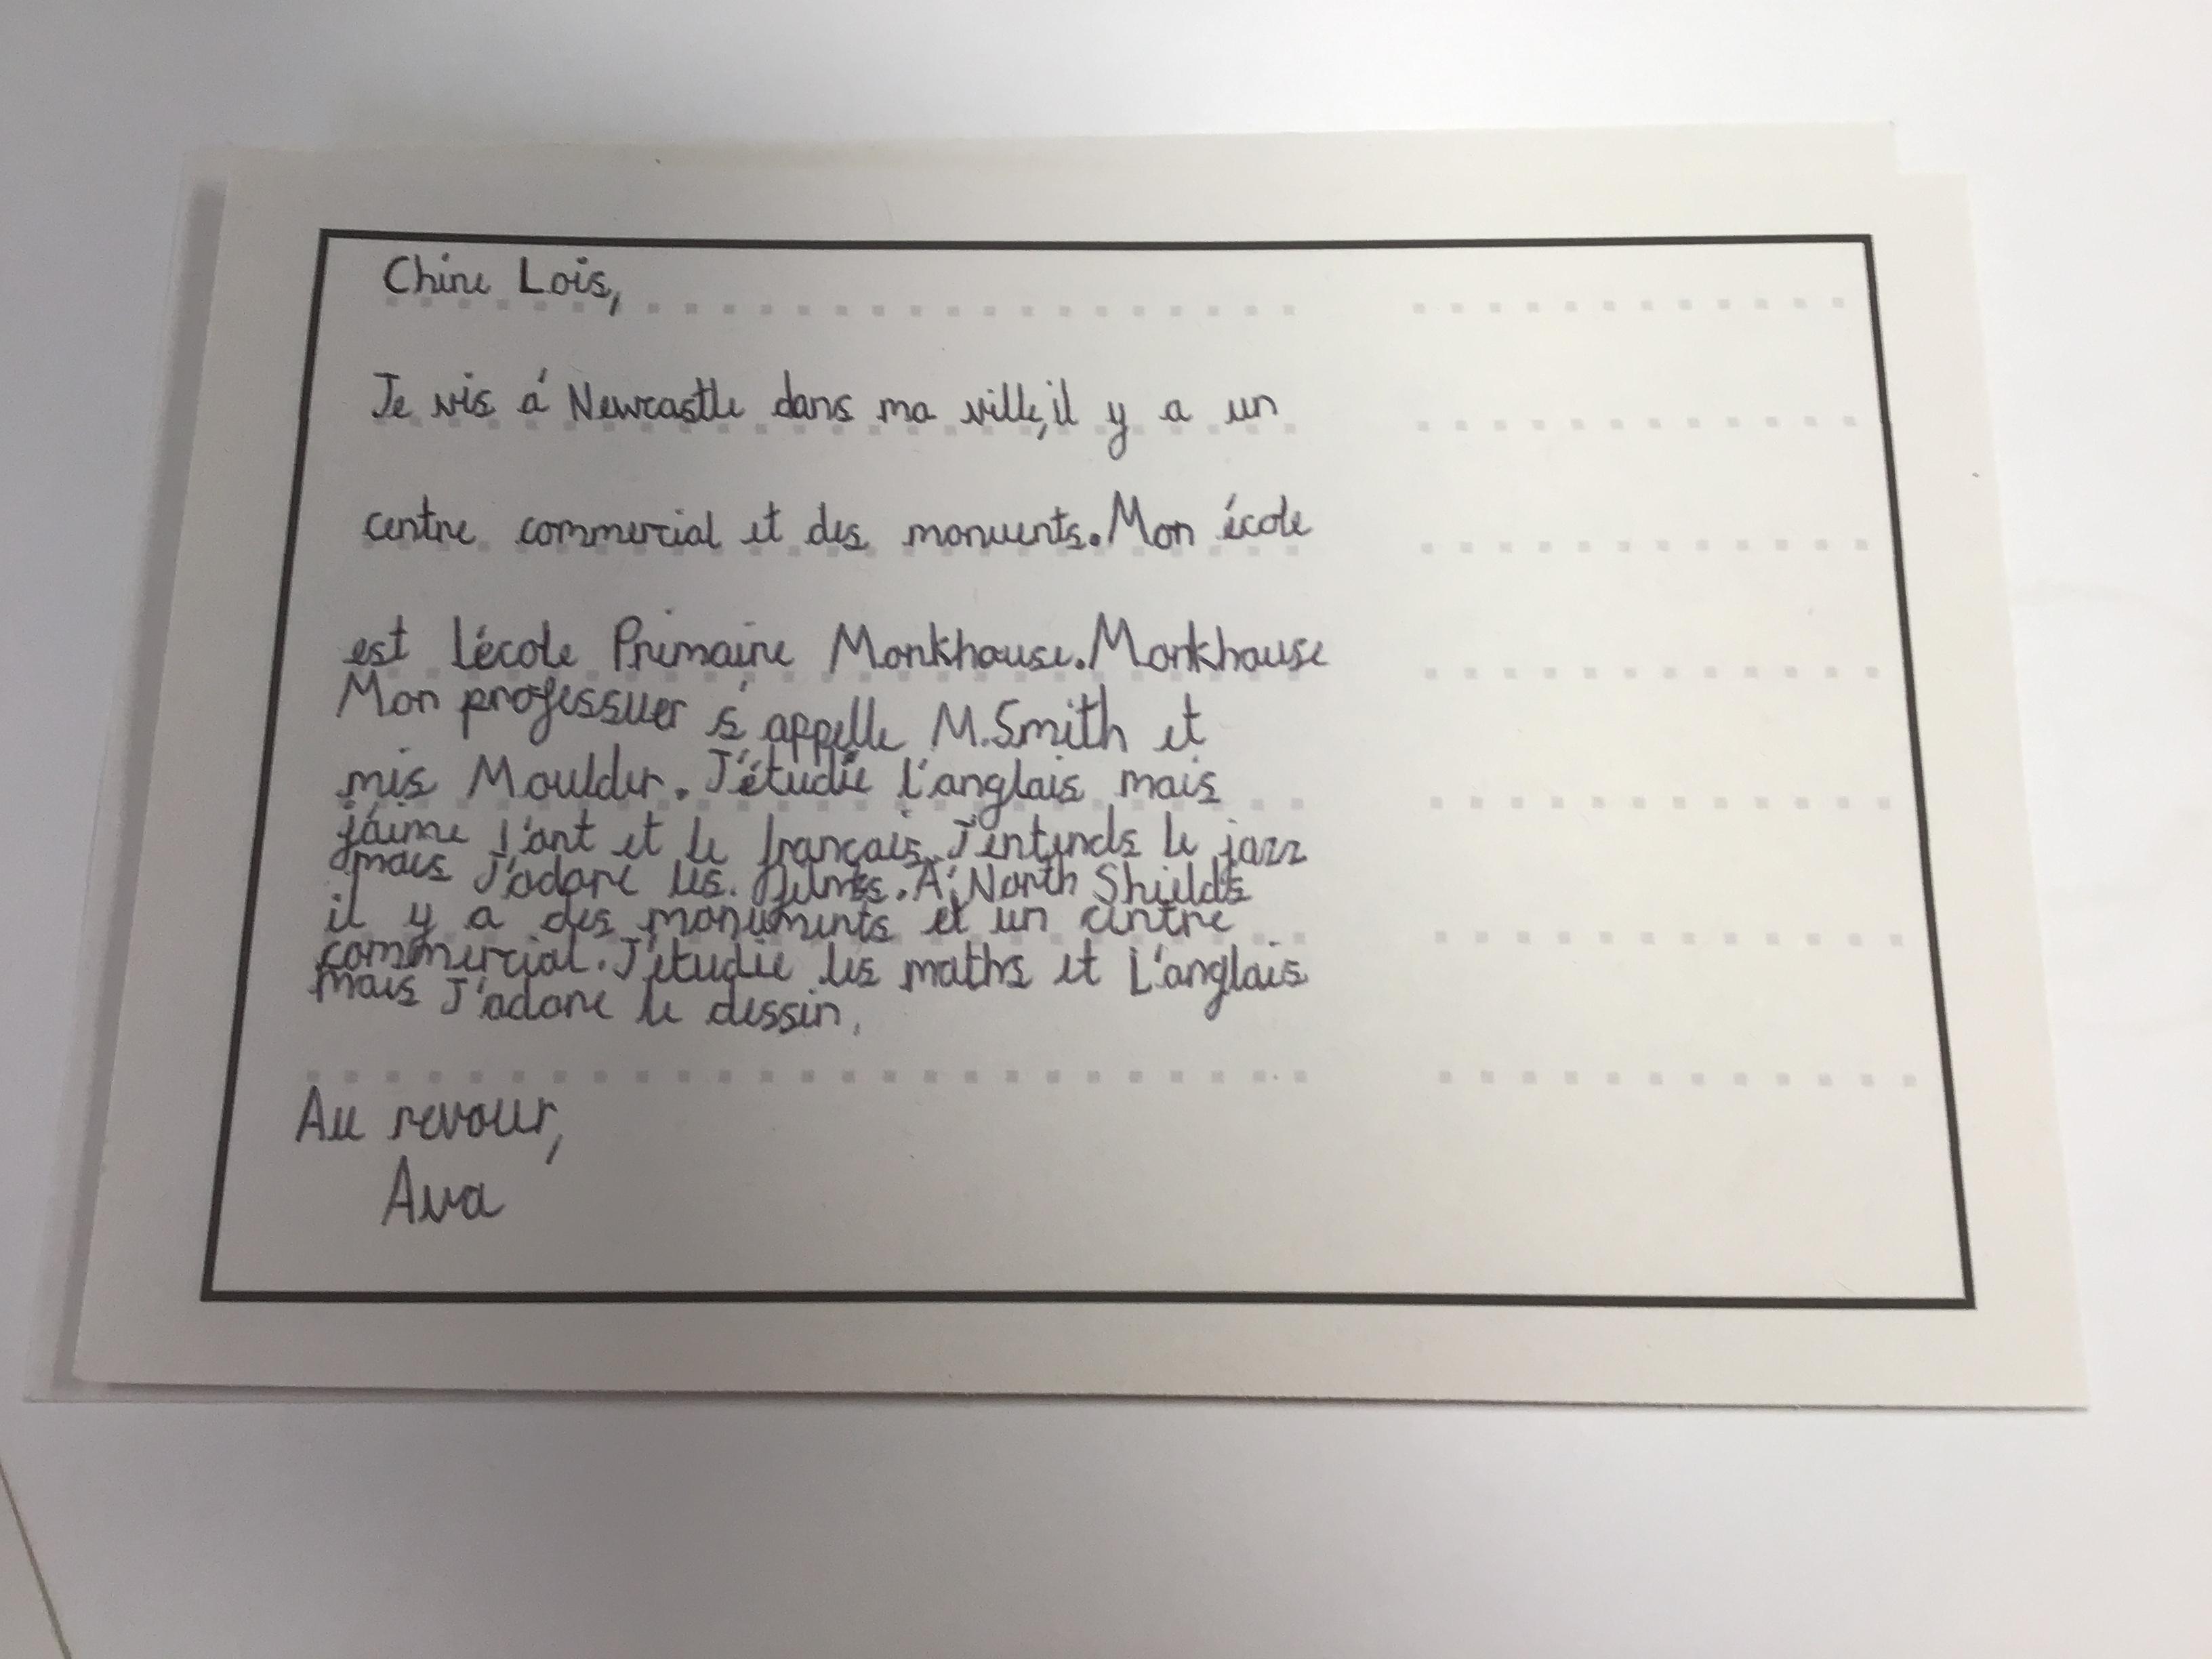 Chire Lois,
Je vis á Newcastle dans ma ville, il y a un
centre commercial et des monuents. Mon école
est l'école Primaire Monkhouse. Monkhouse
Mon professuer s'appelle M. Smith et
mis Moulder. J'étudie l'anglais mais
j'aime l'art et le français. J'entends le jazz
mais J'adore les films. A' North Shields
il y a des monuments et un centre
commercial. J'étudie les maths et L'anglais
mais J'adore le dessin.
Au revour,
Ava